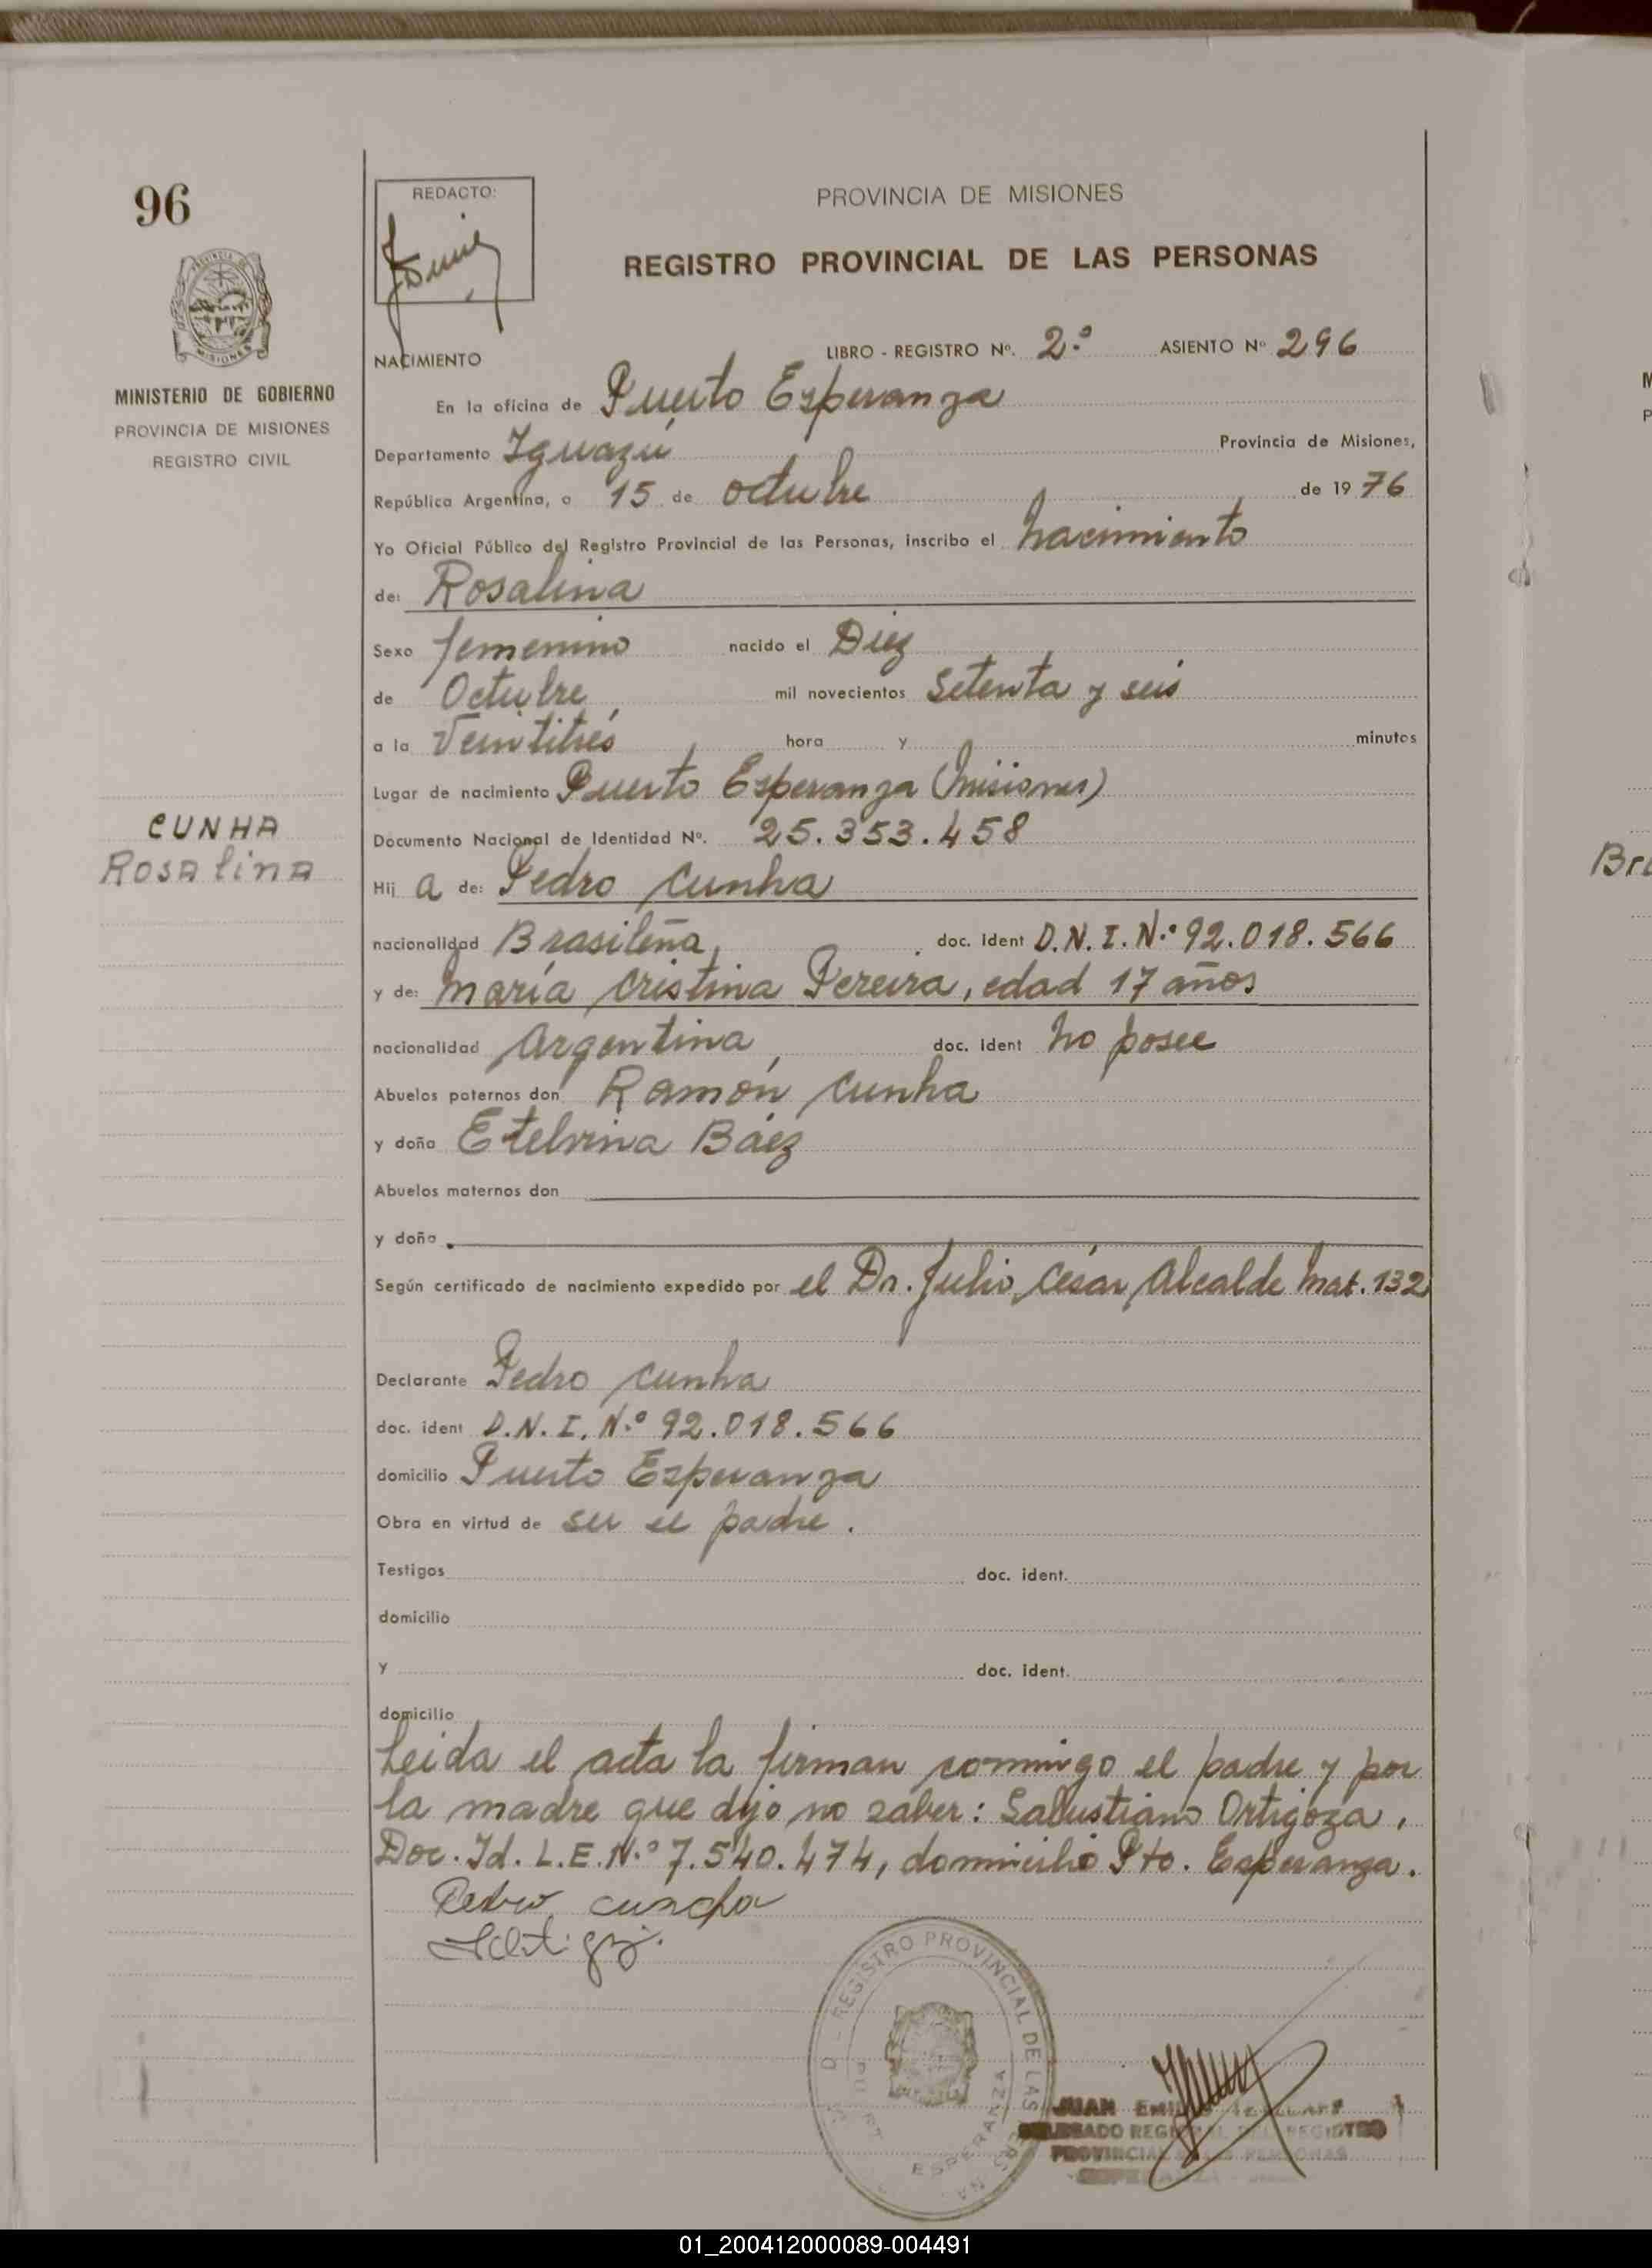 96
MINISTERIO DE GOBIERNO
PROVINCIA DE MISIONES
REGISTRO CIVIL
CUNHA
Rosalina
REDACTO:
PROVINCIA DE MISIONES
REGISTRO PROVINCIAL DE LAS PERSONAS
NACIMIENTO
LIBRO - REGISTRO Nº. 2.º ASIENTO Nº 296
En la oficina de Puerto Esperanza
Departamento Iguazú Provincia de Misiones,
República Argentina, a 15 de octubre de 1976
Yo Oficial Público del Registro Provincial de las Personas, inscribo el nacimiento
de: Rosalina
Sexo femenino nacido el Diez
de Octubre mil novecientos Setenta y seis
a la Veintitrés hora y minutos
Lugar de nacimiento Puerto Esperanza (Misiones)
Documento Nacional de Identidad Nº. 25.353.458
Hij a de: Pedro Cunha
nacionalidad Brasileña, doc. ident D.N.I. N.º 92.018.566
y de: María Cristina Pereira, edad 17 años
nacionalidad Argentina, doc. ident No posee
Abuelos paternos don Ramón Cunha
y doña Etelvina Báez
Abuelos maternos don
y doña
Según certificado de nacimiento expedido por el Dr. Julio César Alcalde Mat. 132
Declarante Pedro Cunha
doc. ident D.N.I. N.º 92.018.566
domicilio Puerto Esperanza
Obra en virtud de ser el padre.
Testigos doc. ident.
domicilio
y doc. ident.
domicilio
Leida el acta la firman conmigo el padre y por
la madre que dijo no saber: Salustiano Ortigoza,
Doc. Id. L.E. N.º 7.540.474, domicilio Pto. Esperanza.
Pedro cuncha
REGISTRO PROVINCIAL DE LAS
ESPERANZA
JUAN
DELEGADO REGIONAL DEL REGISTRO
PROVINCIAL DE LAS PERSONAS
Bra
01_200412000089-004491